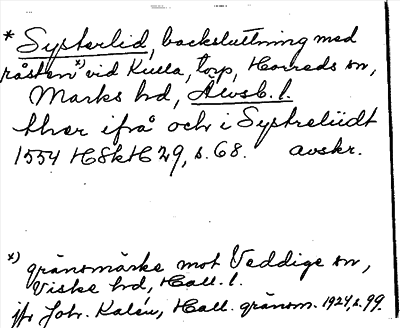 * Systerlid, backsluttning med
råsten*) vid Kulla, torp, Horreds sn,
Marks hd, Älvsb. l.
ther ifrå och i Systreliidt
1554 HSkH 29, s. 68. avskr.
*) gränsmärke mot Veddige sn,
Viske hd, Hall. l.
jfr Joh. Kalén, Hall. gränsm. 1924, s. 99.